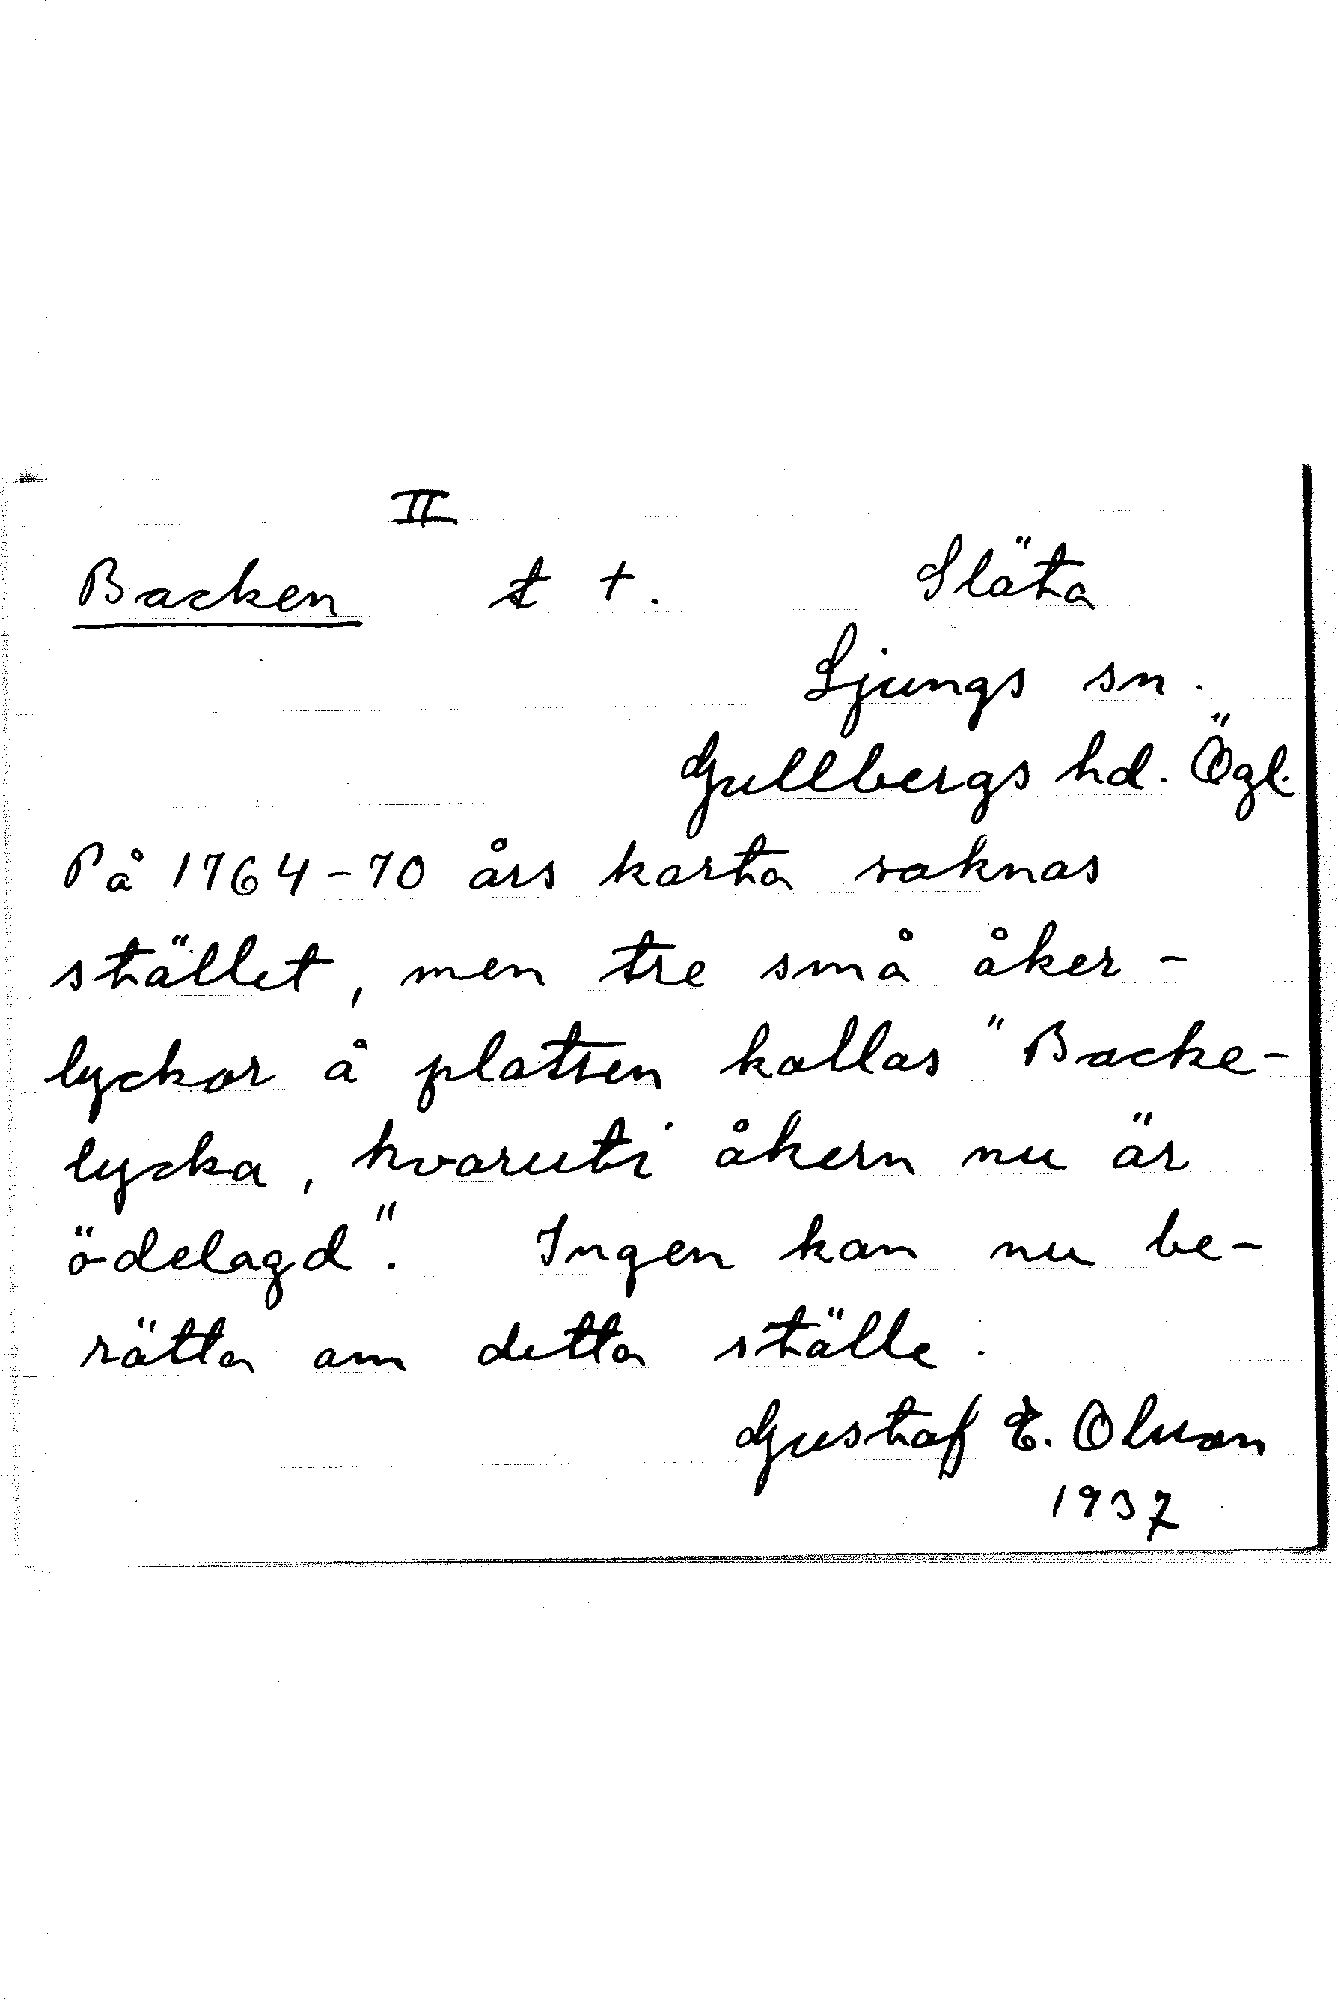 II
Backen t +. Släta
Ljungs sn.
Gullbergs hd. Ögl.
På 1764-70 års karta saknas
stället, men tre små åker-
lyckor å platsen kallas "Backe-
lycka, hvaruti åkern nu är
ödelagd". Ingen kan nu be-
rätta om detta ställe.
Gustaf E. Olsson
1937